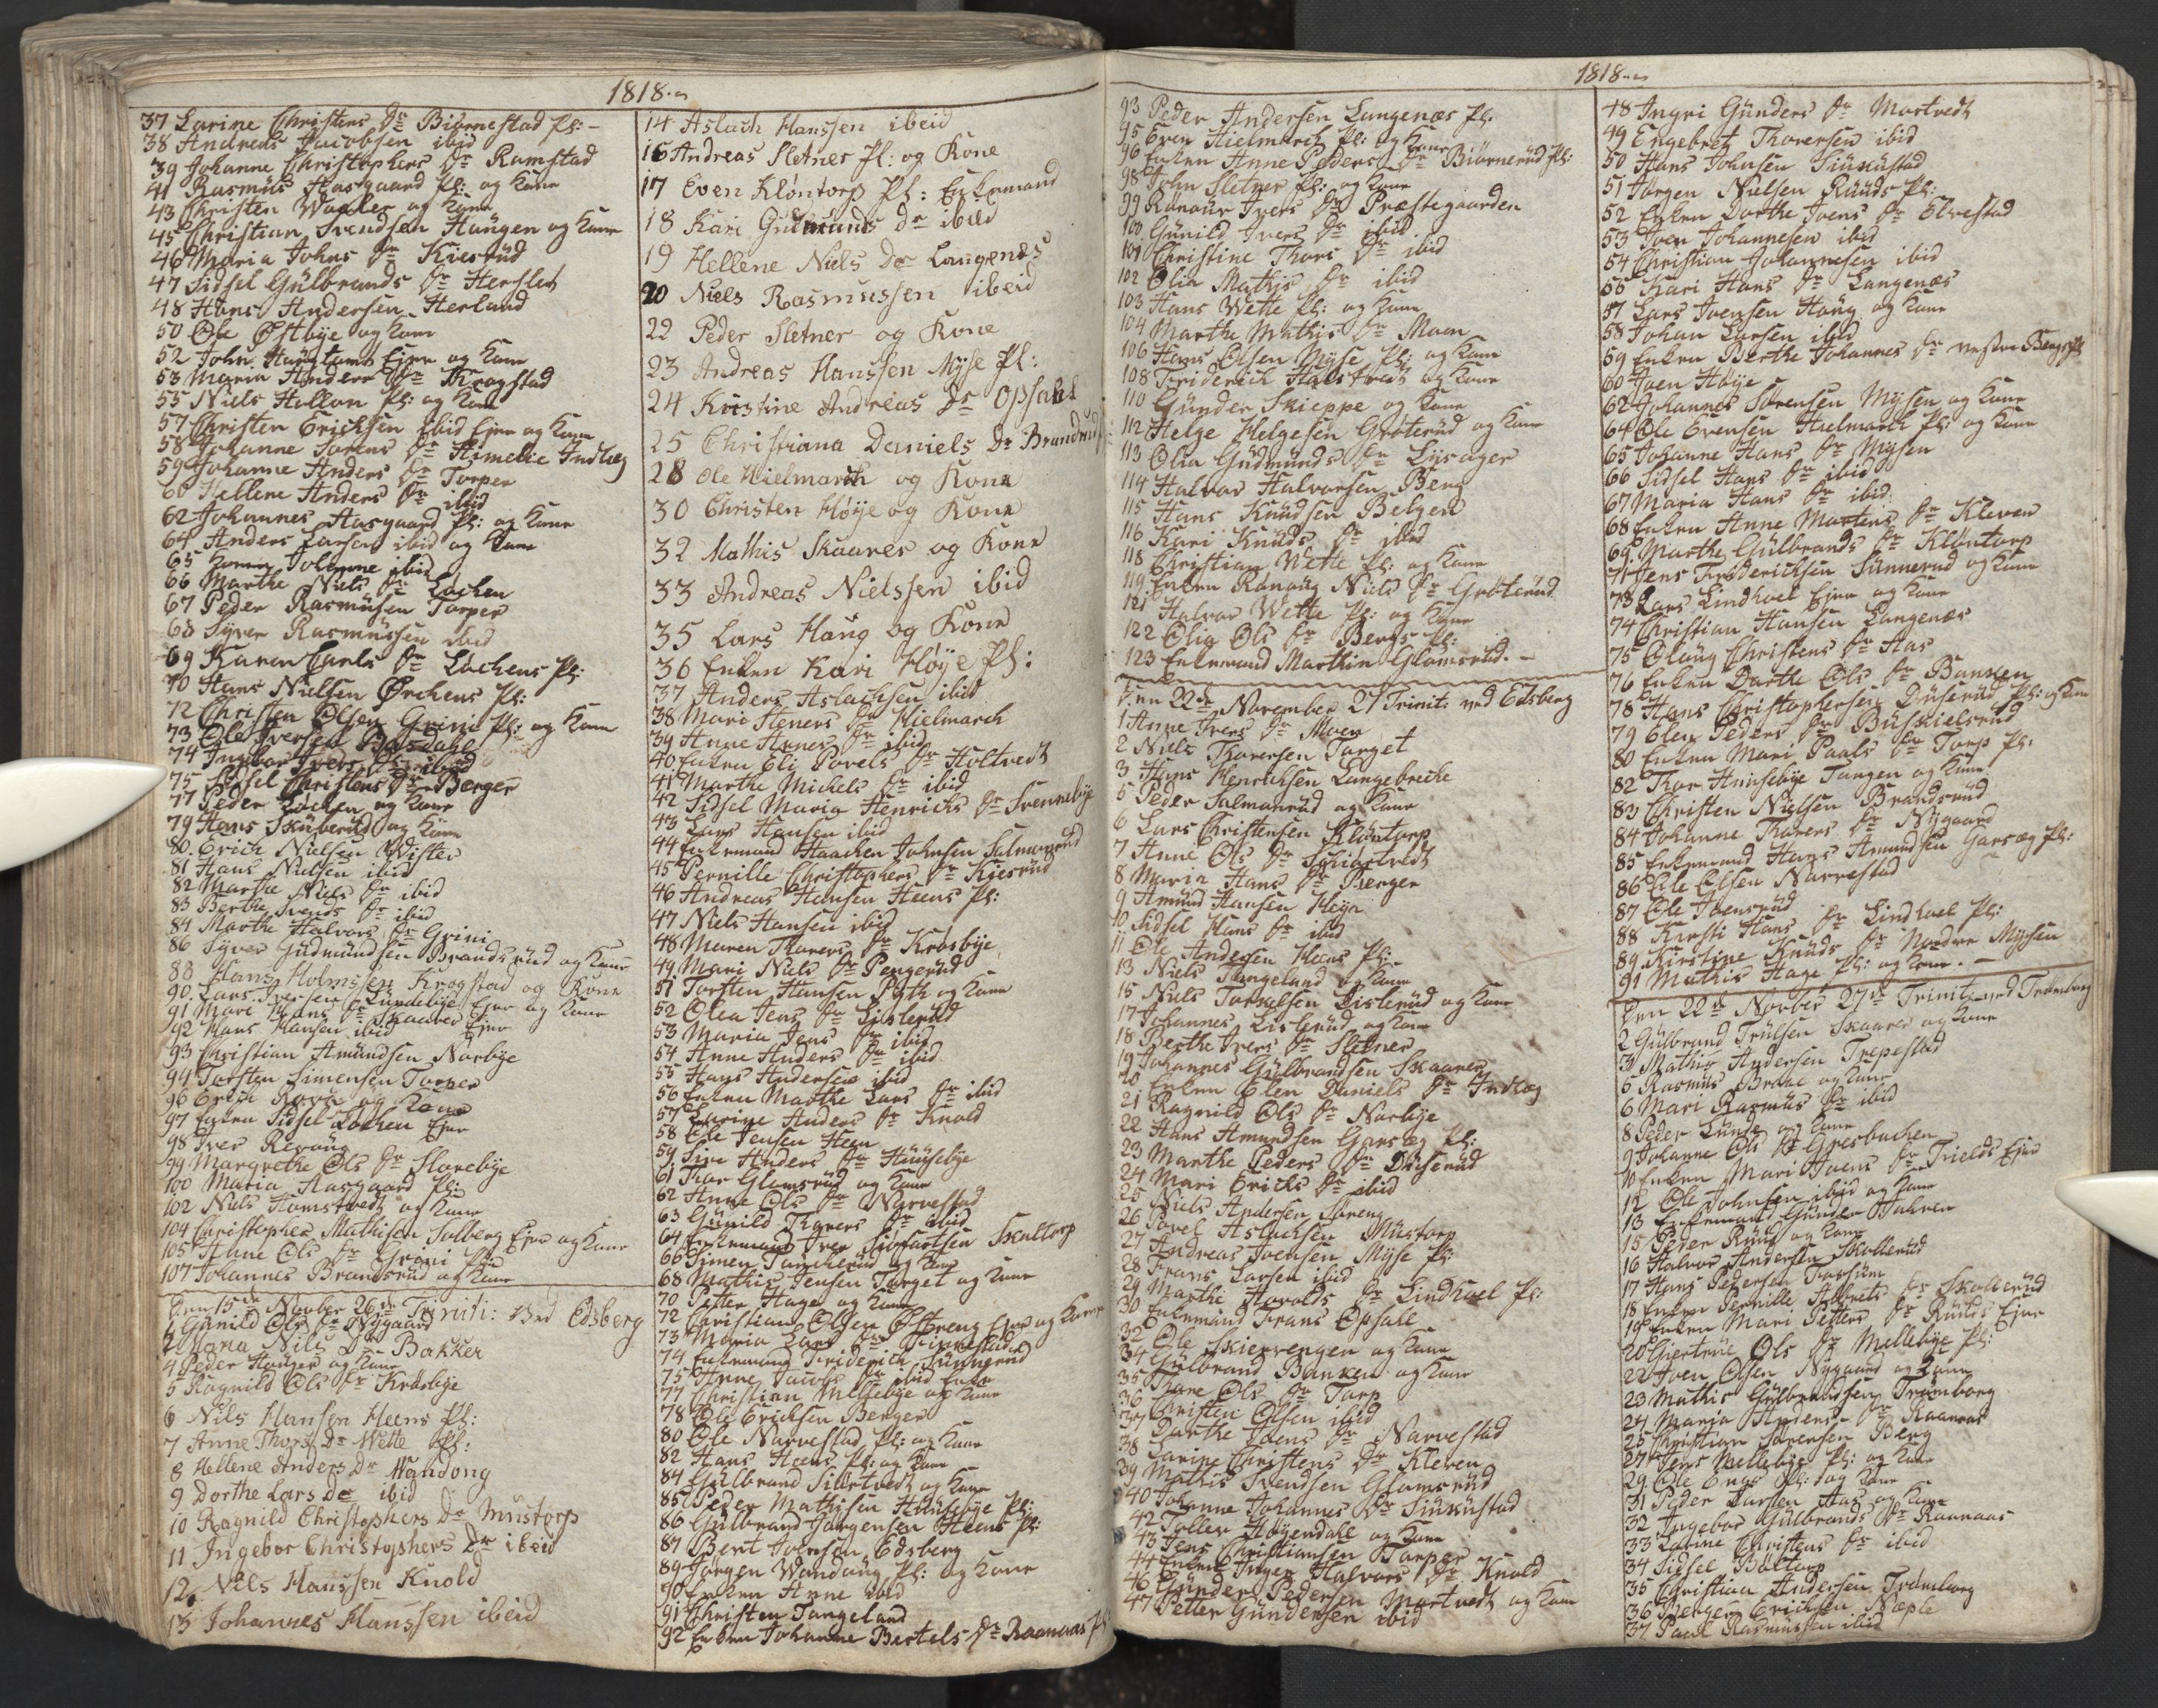 1818.
37 Larine Christens Dr Biørnestad Pl: -
38 Andreas Jacobsen ibid
39 Johanne Christophers Dr Ramstad
41 Rasmus Aasgaard Pl: og Kone
43 Christen Waaler og Kone
45 Christian Svendsen Haugen og Kone
46 Maria Johns Dr Kiesrüd
47 Sidsel Gülbrands Dr Herslet
48 Hans Andersen Herland
50 Ole Østbye og Kone
52 John Eier og Kone
53 Maren Anders Dr Krogstad
55 Niels Pl: og Kone
57 Christen Ericksen ibid Ejer og Kone
58 Johanne Sorens Dr Himelie Indlæg
59 Johanne Anders Dr Torper
60 Hellene Anders Dr ibid
62 Johannes Aasgaard Pl: og Kone
64 Anders Larsen ibid og Kone
65 Johanne ibid
66 Marthe Niels Dr Lochen
67 Peder Rasmüsen Torper
68 Syver Rasmüssen ibid
69 Karen Carls Dr Lochens Pl:
70 Hans Nielsen Ørchens Pl:
72 Christen Olsen Grini Pl: og Kone
73 Ole Iversen
74 Ingebor Ivers Dr ibid
75 Sidsel Christens Dr Berger
77 Peder Lochen og Kone
79 Hans Skuberüd og Kone
80 Erich Nielsen Wister
81 Hans Nielsen ibid
82 Marthe Niels Dr ibid
83 Berthe Svends Dr ibid
84 Marthe Halvors Dr Grini
86 Syver Gudmundsen Brandsrüd og Kone
88 Hans Holmsen Krogstad og Kone
90 Lars Iversen Lundebye Ejer og Kone
91 Mari Hans Dr Skaarer Ejer
92 Hans Hansen ibid
93 Christian Amündsen Narbye
94 Torsten Simensen Torper
96 Erich og Kone
97 Enken Sidsel Lochen Ejer
98 Iver Revaug
99 Margrethe Ols Dr Slorebye
100 Maria Aasgaard Pl:
102 Niels Homstvedt og Kone
104 Christopher Mathisen Solberg Ejer og Kone
105 Anne Ols Dr Grini Pl:
107 Johannes Brandsrüd og Kone
Den 15de Novber 26de Triniti: ved Edsberg
1 Gunild Ols Dr Nygaard
2 Maria Nils Dr Bakker
4 Peder Haüger og Kone
5 Ragnild Ols Dr Krosbye
6 Nils Hansen Heens Pl:
7 Anne Thors Dr Wette Pl:
8 Hellene Anders Dr Wandong
9 Dorthe Lars Dr ibid
10 Ragnild Christophers Dr Mustorp
11 Ingebor Christophers Dr ibeid
12 Nils Hanssen Knold
13 Johannes Hanssen ibeid
14 Aslach Hanssen ibeid
16 Andreas Sletner Pl: og Kone
17 Even Kløntorp Pl: Enkemand
18 Kari Gudmunds Dr ibeid
19 Hellene Niels Dr Langenes
20 Niels Rasmussen ibeid
22 Peder Sletner og Kone
23 Andreas Hanssen Myse Pl:
24 Kristine Andreas Dr Opsahl
25 Christiana Daniels Dr Brandrud
28 Ole Hielmarch og Kone
30 Christen Høije og Kone
32 Mathis Skaarer og Kone
33 Andreas Nielssen ibid
35 Lars Haug og Kone
36 Enken Kari Høye Pl:
37 Anders Aslachsen ibid
38 Mari Steners Dr Hielmarch
39 Anne Arnes Dr ibid
40 Enken Eli Povels Dr Holtvedt
41 Marthe Michels Dr ibid
42 Sidsel Maria Henrichs Dr Svennebye
43 Lars Hansen ibid
44 Enkemand Haachen Johnsen Salmonrud
45 Pernille Christophers Dr Kiesrüd
46 Andreas Hansen Heens Pl:
47 Niels Hansen ibid
48 Maren Thorers Dr Krosbye
49 Mari Niels Dr Pengerüd
51 Torsten Hansen og Kone
52 Olea Jens Dr Listerüd
53 Maria Jens Dr ibid
54 Anne Anders Dr ibid
55 Hans Andersen ibid
56 Enken Marthe Lars Dr ibid
57 Larine Anders Dr Knold
58 Ole Jensen Heen
59 Siri Anders Dr Huusebye
61 Thor Glomsrüd og Kone
62 Anne Ols Dr Narvestad
63 Günild Thorers Dr ibid
64 Enkemand Iver Siofartsen Skultorp
66 Simen og Kone
68 Mathis Jensen Torget og Kone
70 Petter Hage og Kone
72 Christian Olsen Østreng Ejer og Kone
73 Maria Lars Dr
74 Enkemand Friderich Sünnerüd
75 Anne Jacobs Dr ibid Enke
77 Christian Mellebye og Kone
78 Ole Ericksen Berger
80 Ole Narvestad Pl: og Kone
82 Hans Heens Pl: og Kone
84 Gülbrand og Kone
85 Peder Mathisen Hüüsebye Pl:
86 Gülbrand Jørgensen Heens Pl:
87 Bent Joensen Edsberg
89 Jørgen Wandaüg Pl: og Kone
90 Enken Anne ibid
91 Christen Tangeland
92 Enken Johanne Bertels Dr Raanaas Pl:
1818.
93 Peder Andersen Langenæs Pl:
95 Even Hielmarch Pl: og Kone
96 Enken Anne Peders Dr Biørnerüd Pl:
98 John Sletner Pl: og Kone
99 Ranaür Ivers Dr Præstegaarden
100 Günild Ivers Dr ibid
101 Christine Thors Dr ibid
102 Olia Mathis Dr ibid
103 Hans Wette Pl: og Kone
104 Marthe Mathis Dr Moen
106 Hans Olsen Myse Pl: og Kone
108 Friderich og Kone
110 Günder Skieppe og Kone
112 Helge Helgesen Grøterüd og Kone
113 Olia Güdmünds Dr Lysager
114 Halvor Halvorsen Berg
115 Hans Knüdsen Belgen
116 Kari Knüds Dr ibid
118 Christian Wette Pl: og Kone
119 Enken Ranaüg Niels Dr Grøterüd
121 Halvor Wette Pl: og Kone
122 Olia Ols Dr Bergs Pl:
123 Enkemand Marthin Glomsrüd. -
Den 22de November 27 Trinit: ved Edsberg
1 Anne Ivers Dr Moen
2 Niels Thorersen Torget
3 Hans Henrichsen Langebreche
5 Peder Salmonrüd og Kone
6 Lars Christensen Kløntorp
7 Anne Ols Dr
8 Maria Hans Dr Berger
9 Amünd Hansen
10 Sidsel Hans Dr ibid
11 Ole Andersen Heens Pl:
13 Niels Tangeland og Kone
15 Niels Listerüd og Kone
17 Johannes Listerüd og Kone
18 Berthe Ivers Dr Sletner
19 Johannes Gülbrandsen Skaarer
20 Enken Elen Daniels Dr Indlæg
21 Ragnild Ols Dr Narbye
22 Hans Amundsen Garsæg Pl:
23 Marthe Peders Dr Düserüd
24 Mari Erichs Dr ibid
25 Niels Andersen
26 Povel Aslachsen Müstorp
27 Andreas Joensen Myse Pl:
28 Frans Larsen ibid
29 Marthe Harolds Dr Lindhoel Pl:
30 Enkemand Frans Opsahl
32 Ole Skierrengen og Kone
34 Gülbrand Banken og Kone
35 Thore Ols Dr Torp
36 Christen Olsen ibid
37 Dorthe Joens Dr Narvestad
38 Larine Christens Dr Kleven
39 Mathis Svendsen Glomsrüd
40 Johanne Johannes Dr
42 Toller Høyendahl og Kone
43 Jens Christiansen Torper
44 Enken Inger Halvors Dr Knold
46 Günder Pedersen Mortvedt og Kone
47 Petter Gündersen ibid
48 Ingri Günders Dr Mortvedt
49 Engebret Thorersen ibid
50 Hans Johnsen
51 Jørgen Nielsen Rüüds Pl:
52 Enken Dorthe Joens Dr Elvestad
53 Joen Johannesen ibid
54 Christian Johannesen ibid
55 Kari Hans Dr Langenæs
57 Lars Joensen Haug og Kone
58 Johan Larsen ibid
59 Enken Berthe Johannes Dr vestre Bergs Pl:
60 Joen Høije
62 Johannes Sørensen Mysen og Kone
64 Ole Evensen Hielmarch Pl: og Kone
65 Johanne Hans Dr Mysen
66 Sidsel Hans Dr ibid
67 Maria Hans Dr ibid
68 Enken Anne Martins Dr Kleven
69 Marthe Gülbrands Dr Kløntorp
71 Jens Friderichsen Sünnerud og Kone
73 Lars Lindhoel Ejer og Kone
74 Christian Hansen Langenæs
75 Olaüg Christens Dr Aas
76 Enken Dorthe Ols Dr Banken
78 Hans Christophersen Düserüd Pl: og Kone
79 Elen Peders Dr
80 Enken Mari Paals Dr Torp Pl:
82 Thor Huusebye Tangen og Kone
83 Christen Nielsen Brandsrüd
84 Johanne Thorers Dr Nygaard
85 Enkemand Hans Amundsen Garsæg Pl:
86 Ole Olsen Narvestad
87 Ole Joensrüd
88 Kirsti Hans Dr Lindhoel Pl:
89 Kirstine Knüds Dr Nordre Mysen
91 Mathis Hage Pl: og Kone. -
Den 22de Novber 27de Trinit: ved Trømborg
2 Gülbrand Trülsen Skaarer og Kone
3 Mathis Andersen Trepestad
5 Rasmüs Brahe og Kone
6 Mari Rasmüs Dr ibid
8 Peder Lunde og Kone
9 Johanne Ols Dr Gresbachen
10 Enken Mari Joens Dr Trields Ejer
12 Ole Johnsen ibid og Kone
13 Enkemand Günder Jahren
15 Peder Rüüd og Kone
16 Halvor Andersen Skollerüd
17 Hans Pedersen
18 Enken Pernille Dr Skollerüd
19 Enken Mari Petters Dr Rüüds Ejer
20 Giertrue Ols Dr Mellebye Pl:
22 Joen Olsen Nygaard og Kone
23 Mathis Gülbrandsen Trømborg
24 Maria Anders Dr Raanaas
25 Christian Sørensen Berg
27 Jens Mellebye Pl: og Kone
29 Ole Enge Pl: og Kone
31 Peder Larsen Aas og Kone
32 Ingebor Gülbrands Dr Raanaas
33 Larine Christens Dr ibid
34 Sidsel Boltorp
35 Christian Andersen Trømborg
36 Berger Ericksen Næple
37 Paul Rasmussen ibid